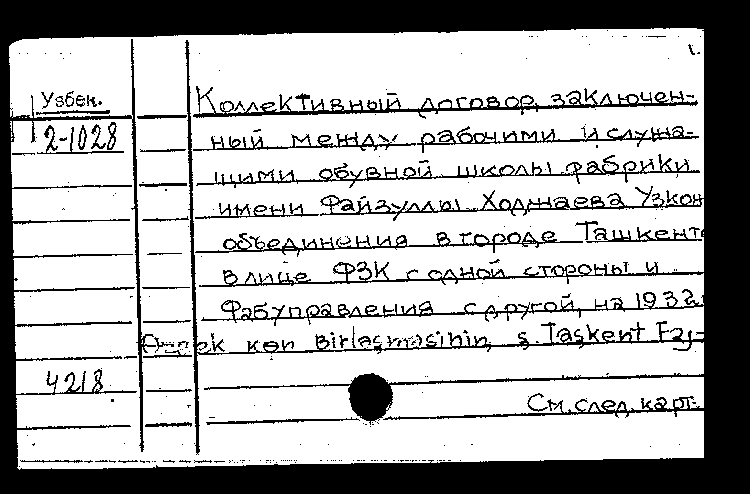 1.
Узбек.
2-1028
Коллективный договор, заключен-
ный между рабочими и служа-
щими обувной школы фабрики
имени Файзуллы Ходжаева Узкож
объединения в городе Ташкенте
в лице ФЗК с одной стороны и
Фабуправления с другой, на 1932
kөn Birlaşmasinin, ş. Taşkent Fzj-
4218
См. след. карт.